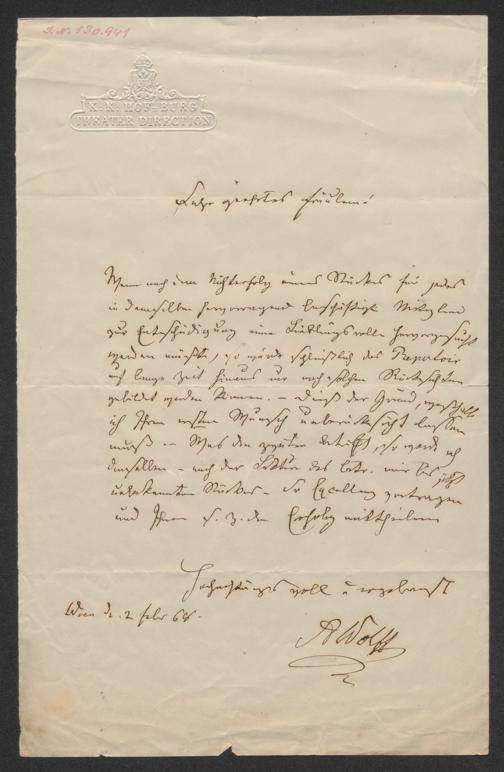 I.N. 130.941
K. K. HOF-BURG
THEATER DIRECTION
Sehr geehrtes Fräulein!
Wenn nach dem Nichterfolg eines Stückes für jedes
in demselben hervorragend beschäftigte Mitglied
zur Entschädigung eine Lieblingsrolle hervorgesucht
werden müßte, so würde schließlich das Repertoir
auf lange Zeit hinaus nur nach solchen Rücksichten
gebildet werden können. – Dieß der Grund, weßhalb
ich Ihren ersten Wunsch unberücksichtigt lassen
muß. – Was den zweiten betrifft, so werde ich
denselben – nach der Lektüre des betr. mir bis jetzt
unbekannten Stückes – Sr Excellenz vortragen
und Ihnen s. Z. den Erfolg mittheilen
Hochachtungsvoll u ergebenst
Wien d. 2 Febr 68.
A Wolff